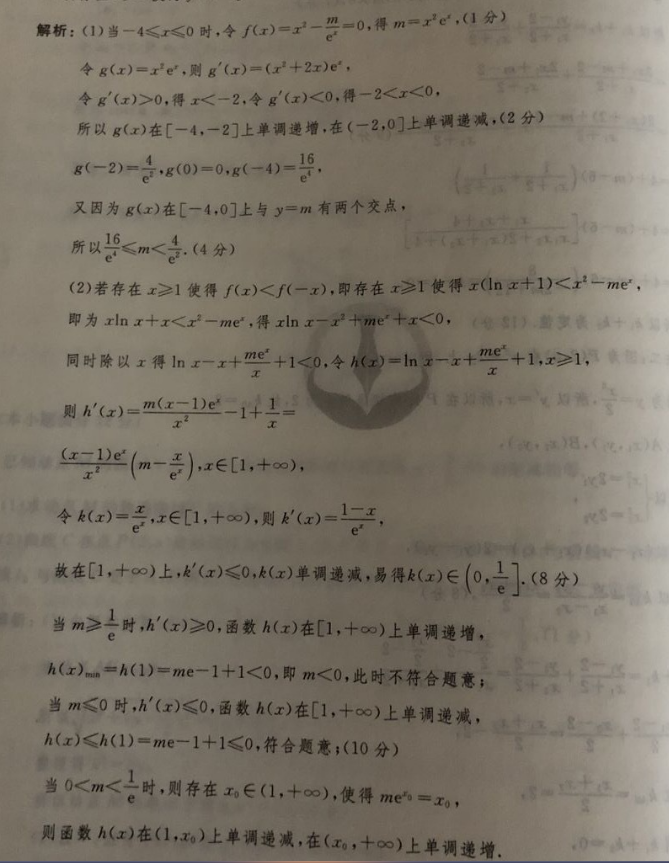 解析:(1)当－4≤x≤0时,令 f(x)=x²－m/eˣ=0,得 m=x²eˣ,(1分)
令 g(x)=x²eˣ,则 g′(x)=(x²+2x)eˣ,
令 g′(x)>0,得 x<－2,令 g′(x)<0,得－2<x<0,
所以 g(x)在[－4,－2]上单调递增,在(－2,0]上单调递减,(2分)
g(－2)=4/e²,g(0)=0,g(－4)=16/e⁴,
又因为 g(x)在[－4,0]上与 y=m 有两个交点,
所以16/e⁴≤m<4/e².(4分)
(2)若存在 x≥1 使得 f(x)<f(－x),即存在 x≥1 使得 x(ln x+1)<x²－meˣ,
即为 xln x+x<x²－meˣ,得 xln x－x²+meˣ+x<0,
同时除以 x 得 ln x－x+meˣ/x+1<0,令 h(x)=ln x－x+meˣ/x+1,x≥1,
则 h′(x)=m(x－1)eˣ/x²－1+1/x=
(x－1)eˣ/x²(m－x/eˣ),x∈[1,+∞),
令 k(x)=x/eˣ,x∈[1,+∞),则 k′(x)=1－x/eˣ,
故在[1,+∞)上,k′(x)≤0,k(x)单调递减,易得k(x)∈(0,1/e].(8分)
当 m≥1/e时,h′(x)≥0,函数 h(x)在[1,+∞)上单调递增,
h(x)min=h(1)=me－1+1<0,即 m<0,此时不符合题意;
当 m≤0 时,h′(x)≤0,函数 h(x)在[1,+∞)上单调递减,
h(x)≤h(1)=me－1+1≤0,符合题意;(10分)
当 0<m<1/e时,则存在 x₀∈(1,+∞),使得 meˣ⁰=x₀,
则函数 h(x)在(1,x₀)上单调递减,在(x₀,+∞)上单调递增.